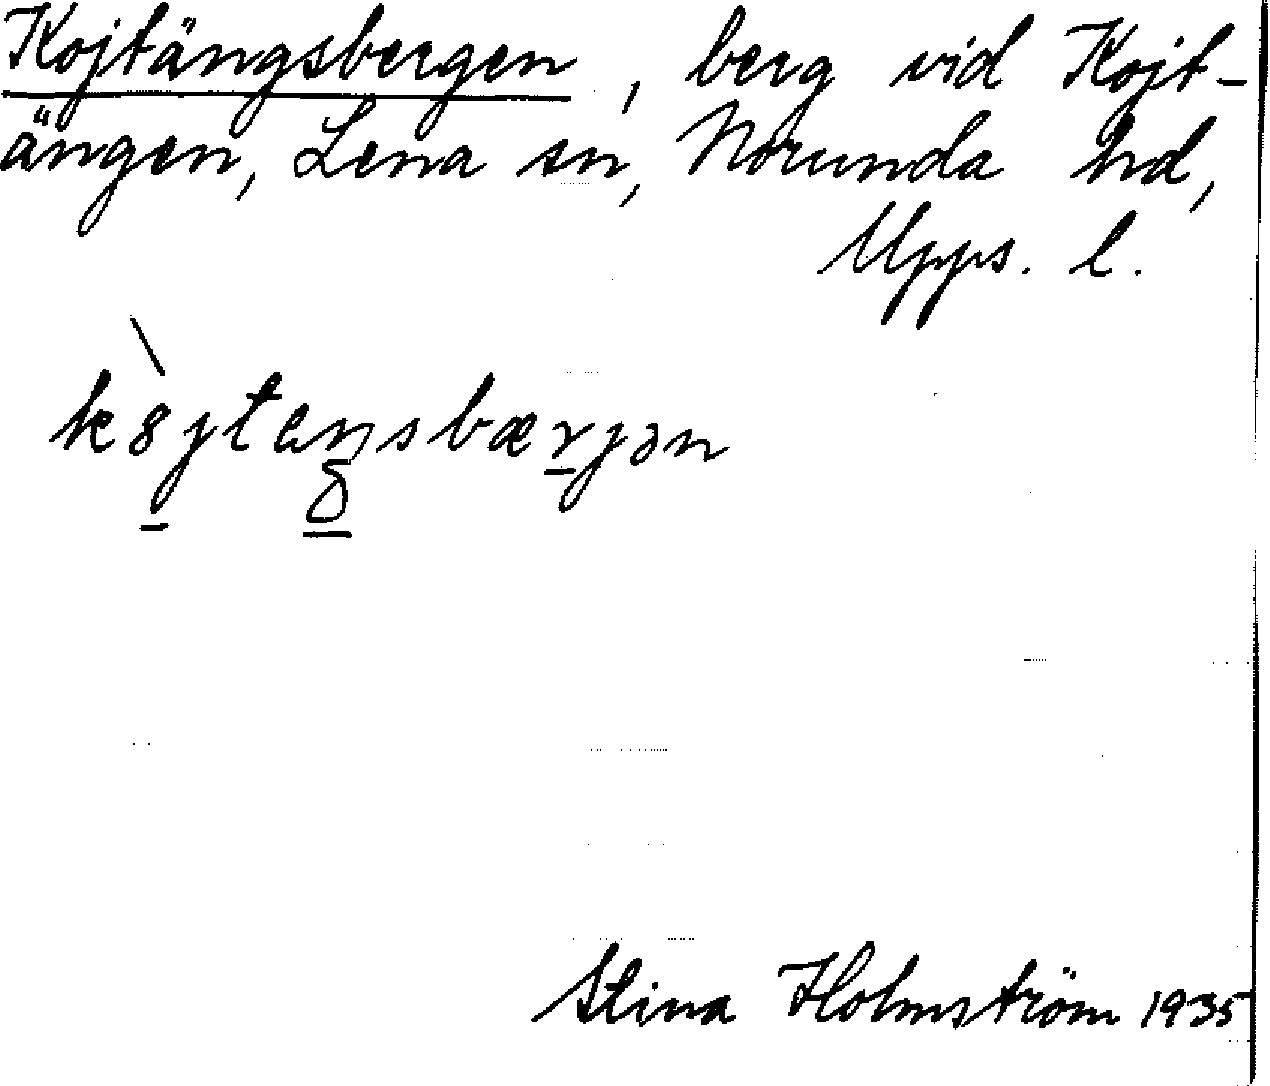 Kojtängsbergen, berg vid Kojt-
ängen, Lena sn, Norunda hd,
Upps. l.
Stina Holmström 1935